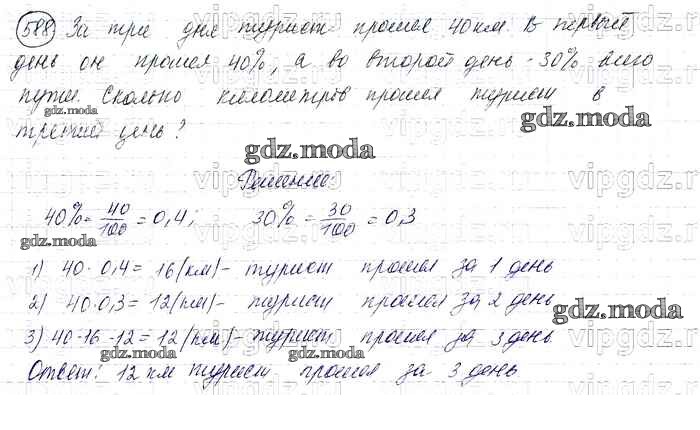 588) За три дня турист прошел 40 км. В первый
день он прошел 40%, а во второй день - 30% всего
пути. Сколько километров прошел турист в
третий день?
gdz.moda
gdz.moda
gdz.moda
Решение:
40% = 40/100 = 0,4; 30% = 30/100 = 0,3
gdz.moda
1) 40 · 0,4 = 16 (км) - турист прошел за 1 день
2) 40 · 0,3 = 12 (км) - турист прошел за 2 день
gdz.moda
3) 40 - 16 - 12 = 12 (км) - турист прошел за 3 день
gdz.moda gdz.moda gdz.moda
Ответ: 12 км турист прошел за 3 день
vipgdz.ru